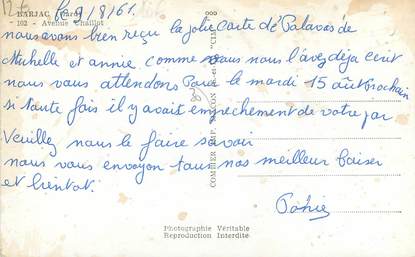 BARJAC (Gard)
- 102 - Avenue Chaillot
le 9/8/61.
nous avons bien reçu la jolie carte de Palavas de
Michelle et annie comme vous nous l'avez deja ecrit
nous vous attendons pour le mardi 15 août prochain
si toute fois il y avait empechement de votre par
Veuillez nous le faire savoir
nous vous envoyon tous nos meilleur baiser
et bientot.
COMBIER IMP. MACON "CIM"
Photographie Véritable
Reproduction Interdite